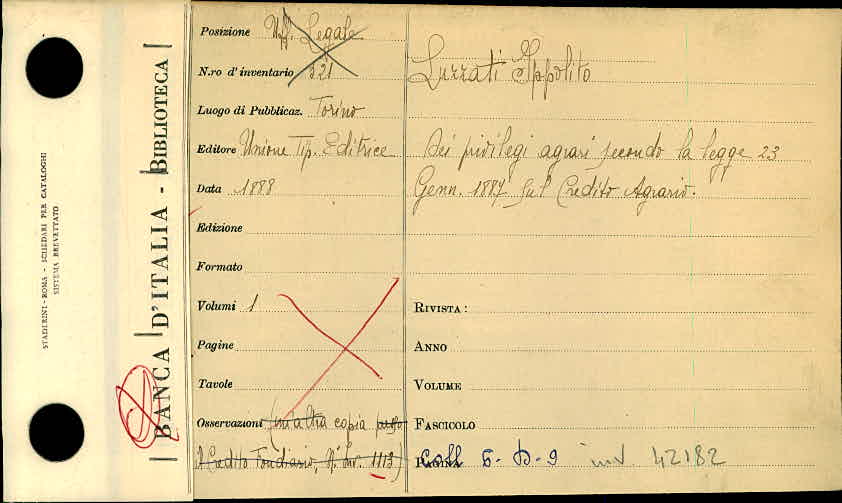 STADERINI - ROMA - SCHEDARI PER CATALOGHI
SISTEMA BREVETTATO
BANCA D'ITALIA - BIBLIOTECA
Posizione Uff. Legale
N.ro d'inventario 321
Luogo di Pubblicaz. Torino
Editore Unione Tip. Editrice
Data 1888
Edizione
Formato
Volumi 1
Pagine
Tavole
Osservazioni (un'altra copia presso
il Credito Fondiario, N. Inv. 1113)
Luzzati Ippolito
Dei privilegi agrari secondo la legge 23
Genn. 1887 sul Credito Agrario.
RIVISTA:
ANNO
VOLUME
FASCICOLO
PAGINA Coll 5-D-9 inv. 42182